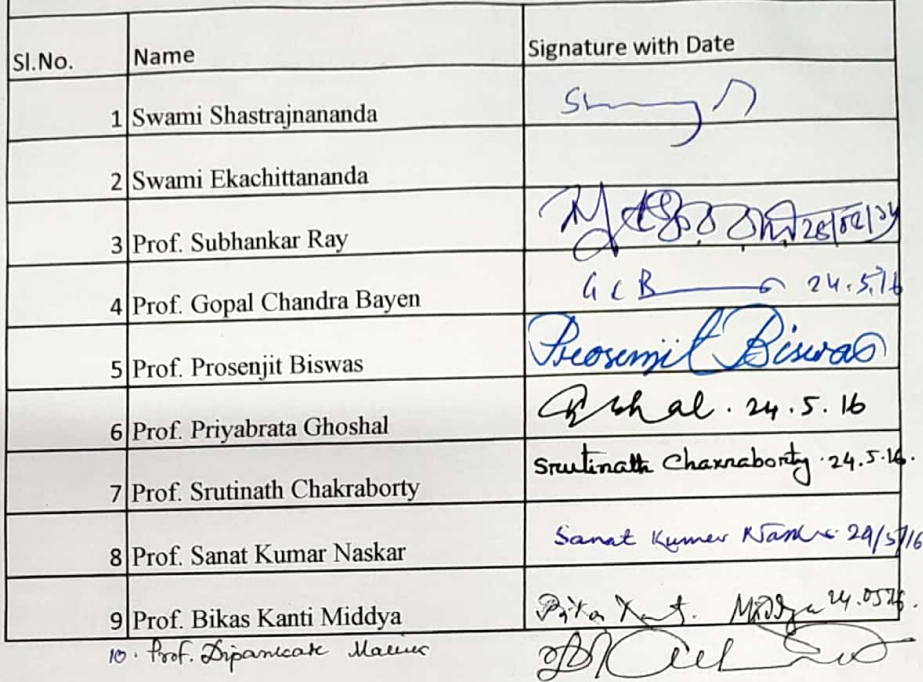 Sl.No. Name Signature with Date
1 Swami Shastrajnananda
2 Swami Ekachittananda
3 Prof. Subhankar Ray
4 Prof. Gopal Chandra Bayen G C B 24.5.16
5 Prof. Prosenjit Biswas Prosenjit Biswas
6 Prof. Priyabrata Ghoshal 24.5.16
7 Prof. Srutinath Chakraborty Srutinath Chakraborty 24.5.16.
8 Prof. Sanat Kumar Naskar Sanat Kumar Naskar
9 Prof. Bikas Kanti Middya Bikas Kanti Middya 24.05.16.
10. Prof. Dipankar